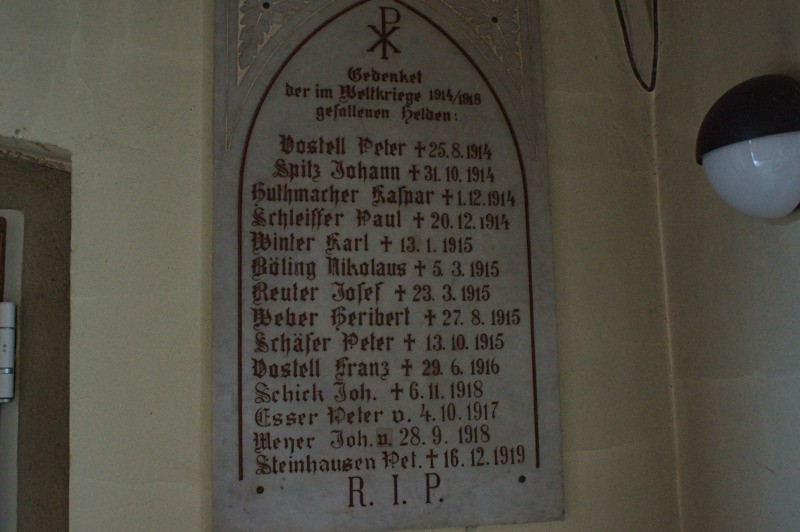 Gedenket
der im Weltkriege 1914/1918
gefallenen Helden:
Vostell Peter ✝ 25. 8. 1914
Spitz Johann ✝ 31. 10. 1914
Huthmacher Kaspar ✝ 1. 12. 1914
Schleiffer Paul ✝ 20. 12. 1914
Winter Karl ✝ 13. 1. 1915
Böling Nikolaus ✝ 5. 3. 1915
Reuter Josef ✝ 23. 3. 1915
Weber Heribert ✝ 27. 8. 1915
Schäfer Peter ✝ 13. 10. 1915
Vostell Franz ✝ 29. 6. 1916
Schick Joh. ✝ 6. 11. 1918
Esser Peter v. 4. 10. 1917
Meyer Joh. v. 28. 9. 1918
Steinhausen Pet. ✝ 16. 12. 1919
R. I. P.